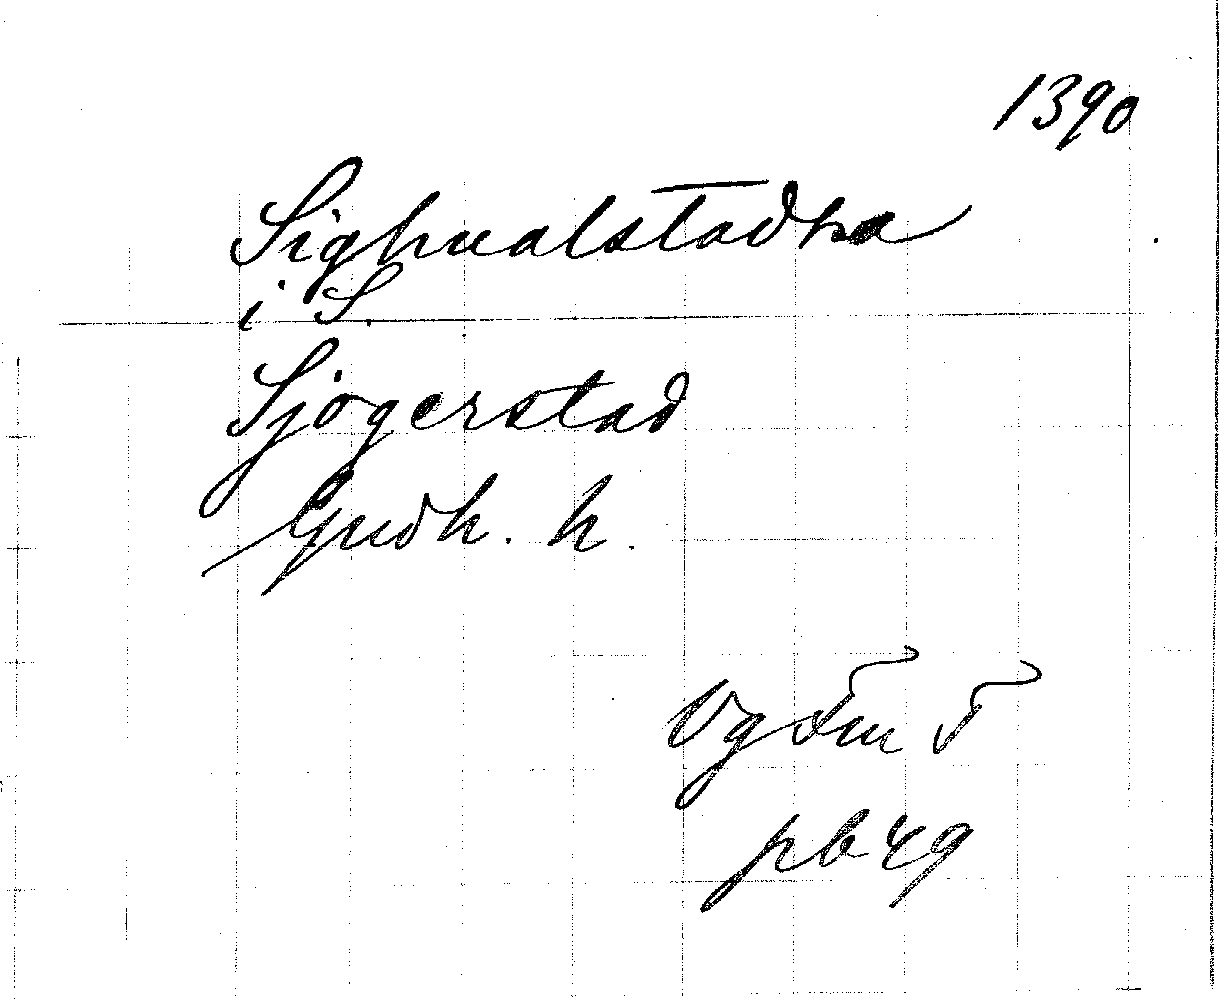 1390
Sighualstadha
i S.
Sjögerstad
Gudh. h.
Ög Fm F
pb 49